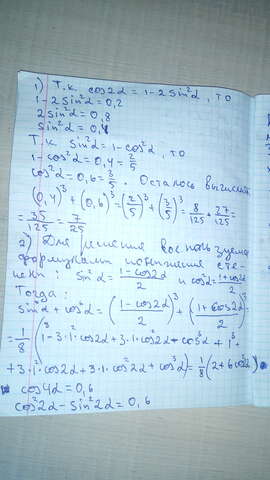 1) Т.к. cos2α = 1-2sin²α, то
1-2sin²α=0,2
2sin²α=0,8
sin²α=0,4
Т.к. sin²α=1-cos²α, то
1-cos²α=0,4=2/5
cos²α=0,6=3/5. Осталось вычислить
(0,4)³+(0,6)³=(2/5)³+(3/5)³=8/125+27/125=
=35/125=7/25
2) Для решения воспользуемся
формулами понижения сте-
пени: sin²α=(1-cos2α)/2 и cos²α=(1+cos2α)/2
Тогда:
sin⁶α+cos⁶α=((1-cos2α)/2)³+((1+cos2α)/2)³=
=1/8(1³-3·1²·cos2α+3·1·cos²2α-cos³α+1³+
+3·1²·cos2α+3·1·cos²2α+cos³α)=1/8(2+6cos²2α)
cos4α=0,6
cos²2α-sin²2α=0,6